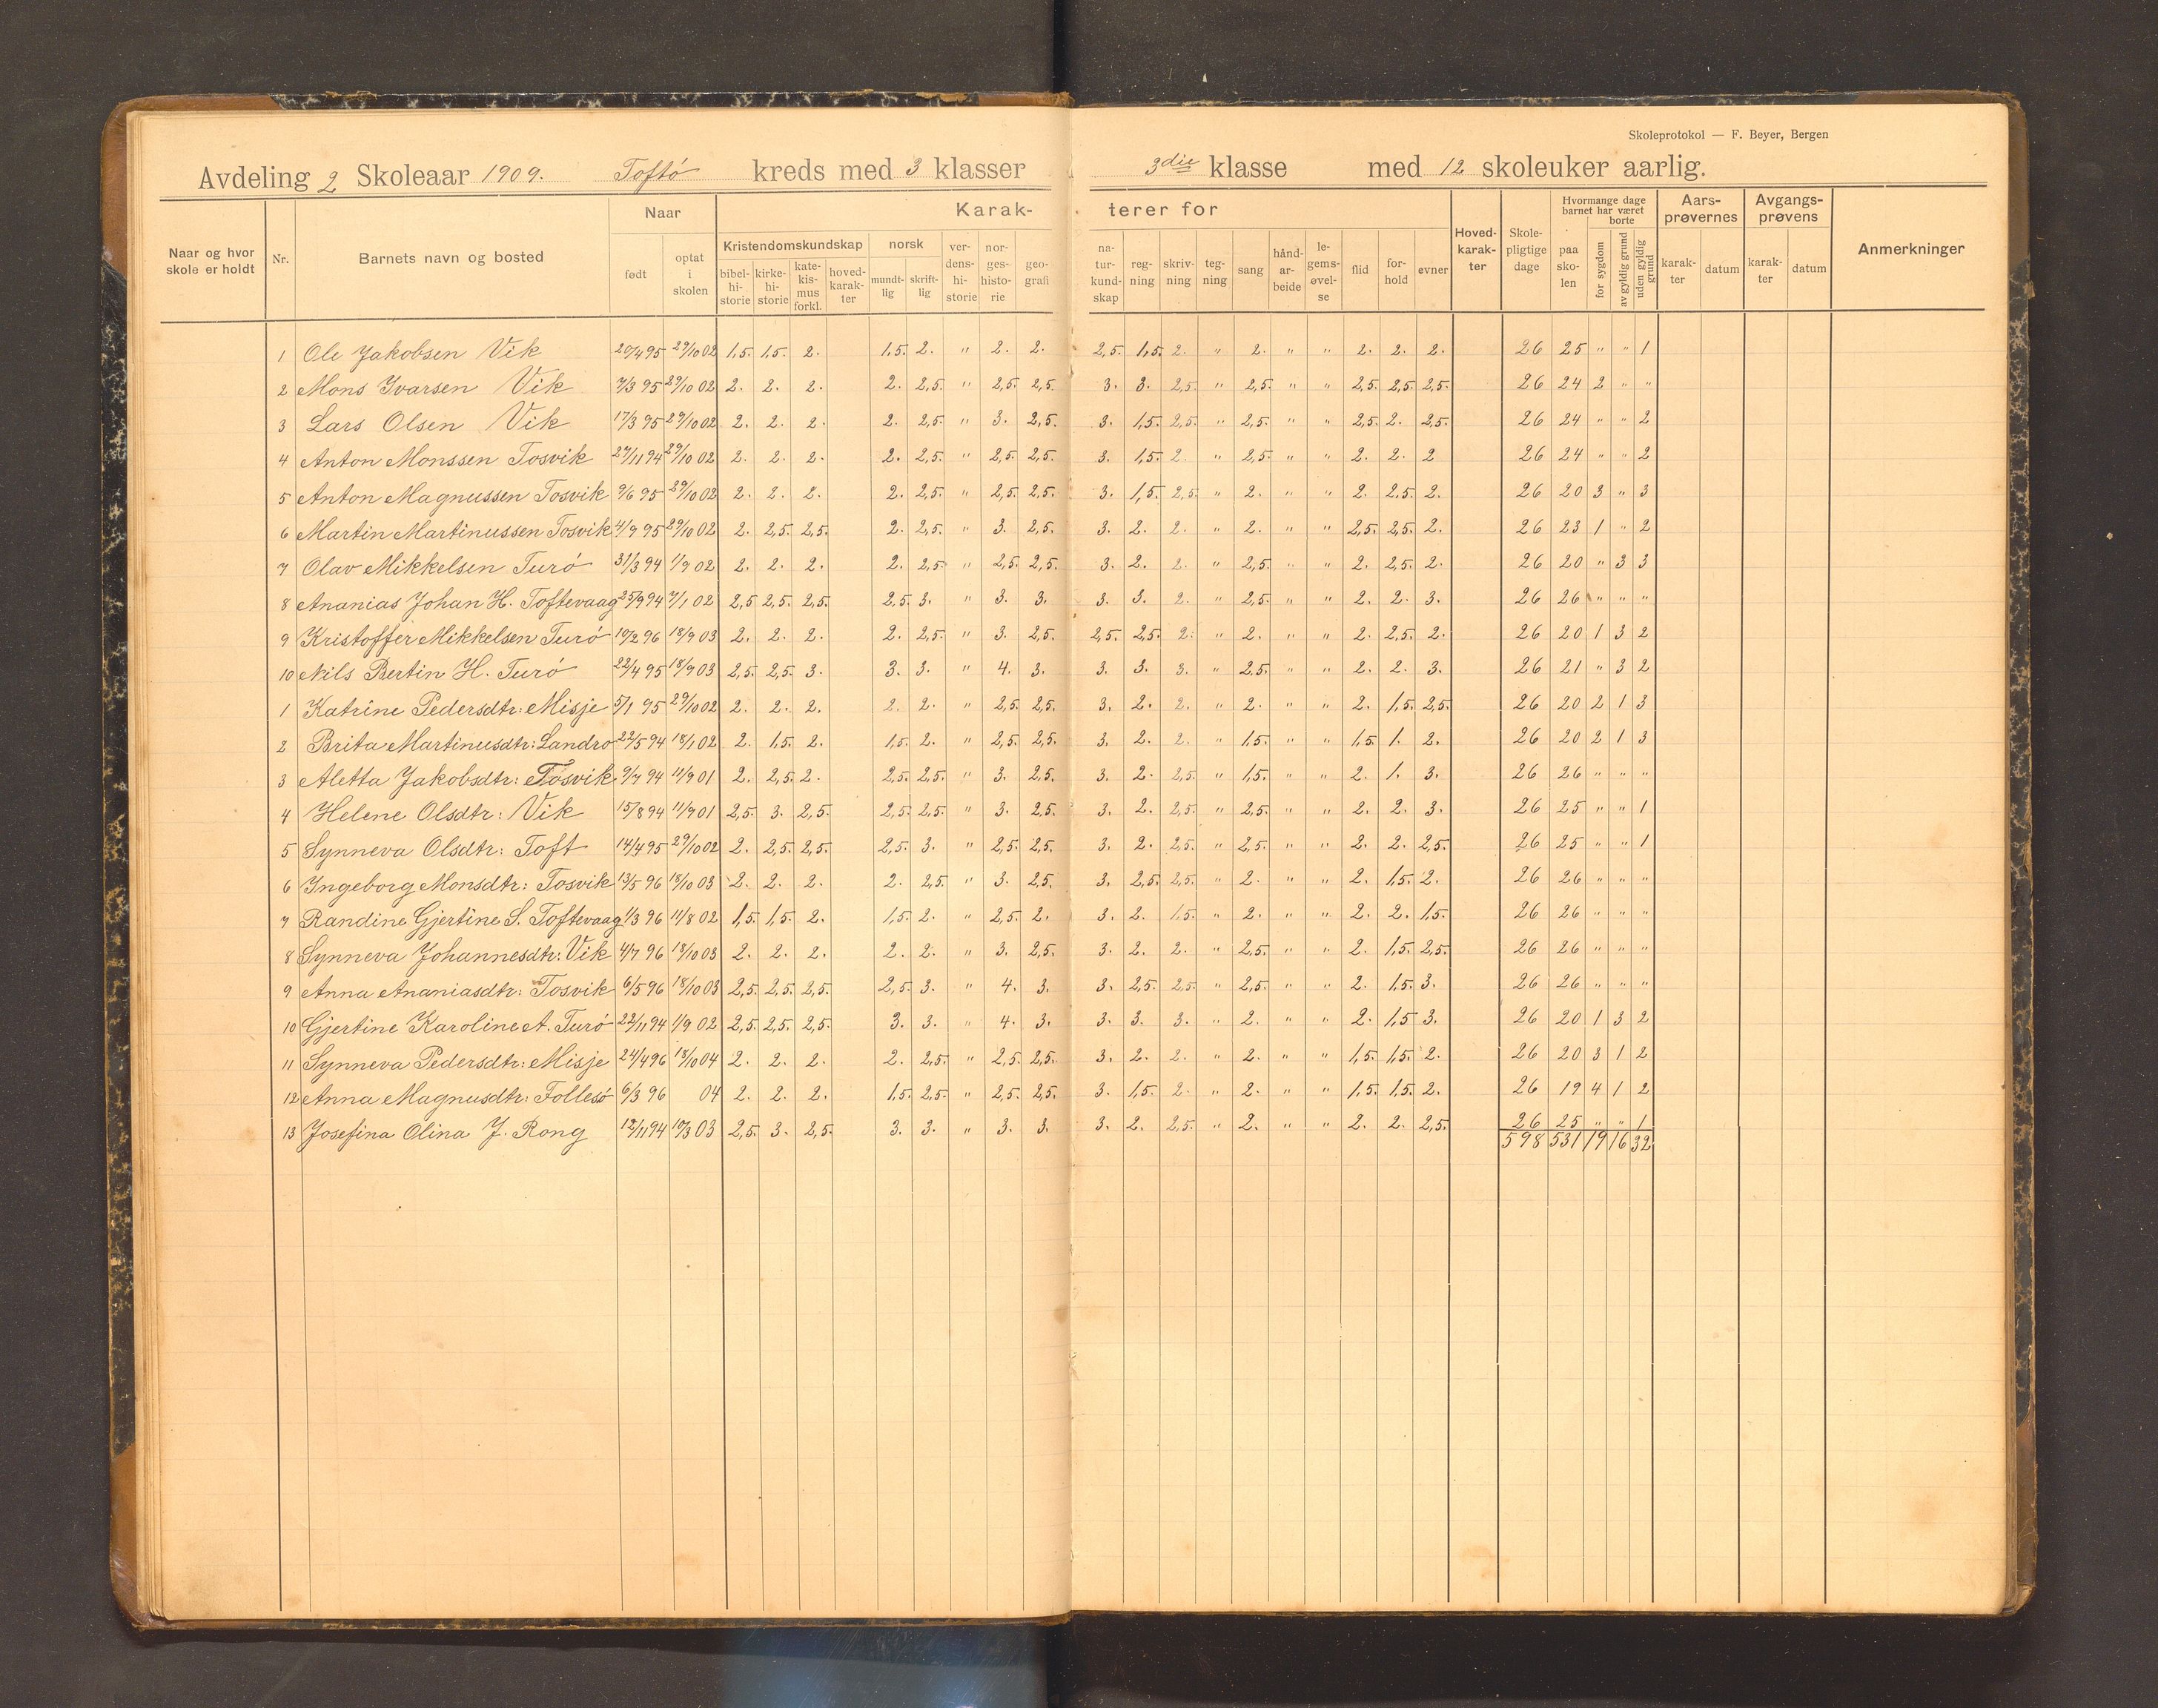 Skoleprotokol — F. Beyer, Bergen
Avdeling 2 Skoleaar 1909. Toftö kreds med 3 klasser 3die klasse med 12 skoleuker aarlig.
Naar og hvor skole er holdt Nr. Barnets navn og bosted Naar født optat i skolen Karakterer for Kristendomskundskap bibelhistorie kirkehistorie katekismus forkl. hovedkarakter norsk mundtlig skriftlig verdenshistorie norgeshistorie geografi naturkundskap regning skrivning tegning sang håndarbeide legemsøvelse flid forhold evner Hovedkarakter Skolepligtige dage Hvormange dage barnet har været borte paa skolen for sygdom av gyldig grund uden gyldig grund Aarsprøvernes karakter datum Avgangsprøvens karakter datum Anmerkninger
1 Ole Jakobsen Vik 20/4 95 29/10 02 1,5. 1,5. 2. 1,5. 2. " 2. 2. 2,5. 1,5. 2. " 2. " " 2. 2. 2. 26 25 " " 1
2 Mons Ivarsen Vik 7/3 95 29/10 02 2. 2. 2. 2. 2,5. " 2,5. 2,5. 3. 3. 2,5. " 2,5. " " 2,5. 2,5. 2,5. 26 24 2 " "
3 Lars Olsen Vik 17/3 95 29/10 02 2. 2. 2. 2. 2,5. " 3. 2,5. 3. 1,5. 2,5. " 2,5. " " 2,5. 2. 2,5. 26 24 " " 2
4 Anton Monssen Tosvik 27/11 94 29/10 02 2. 2. 2. 2. 2,5. " 2,5. 2,5. 3. 1,5. 2. " 2,5. " " 2. 2. 2 26 24 " " 2
5 Anton Magnussen Tosvik 9/6 95 29/10 02 2. 2. 2. 2. 2,5. " 2,5. 2,5. 3. 1,5. 2,5. " 2. " " 2. 2,5. 2. 26 20 3 " 3
6 Martin Martinussen Tosvik 4/9 95 29/10 02 2. 2,5. 2,5. 2. 2,5. " 3. 2,5. 3. 2. 2. " 2. " " 2,5. 2,5. 2. 26 23 1 " 2
7 Olav Mikkelsen Turö 31/3 94 1/9 02 2. 2. 2. 2. 2,5. " 2,5. 2,5. 3. 2. 2. " 2,5. " " 2. 2,5. 2. 26 20 " 3 3
8 Ananias Johan H. Toftevaag 25/9 94 7/1 02 2,5 2,5. 2,5. 2,5. 3. " 3. 3. 3. 3. 2. " 2,5. " " 2. 2. 3. 26 26 " " "
9 Kristoffer Mikkelsen Turö 10/2 96 18/9 03 2. 2. 2. 2. 2,5. " 3. 2,5. 2,5. 2,5. 2. " 2. " " 2. 2,5. 2. 26 20 1 3 2
10 Nils Bertin H. Turö 22/4 95 18/9 03 2,5. 2,5. 3. 3. 3. " 4. 3. 3. 3. 3. " 2,5. " " 2. 2. 3. 26 21 " 3 2
1 Katrine Pedersdtr: Misje 5/1 95 29/10 02 2. 2. 2. 2. 2. " 2,5. 2,5. 3. 2. 2. " 2. " " 2. 1,5. 2,5. 26 20 2 1 3
2 Brita Martinusdtr: Landro 22/5 94 18/1 02 2. 1,5. 2. 1,5. 2. " 2,5. 2,5. 3. 2. 2. " 1,5. " " 1,5. 1. 2. 26 20 2 1 3
3 Aletta Jakobsdtr: Tosvik 9/7 94 11/9 01 2. 2,5. 2. 2,5. 2,5. " 3. 2,5. 3. 2. 2,5. " 1,5. " " 2. 1. 3. 26 26 " " "
4 Helene Olsdtr: Vik 15/8 94 11/9 01 2,5. 3. 2,5. 2,5. 2,5. " 3. 2,5. 3. 2. 2,5. " 2,5. " " 2. 2. 3. 26 25 " " 1
5 Synneva Olsdtr: Toft 14/4 95 29/10 02 2. 2,5. 2,5. 2,5. 3. " 2,5. 2,5. 3. 2. 2,5. " 2,5. " " 2. 2. 2,5. 26 25 " " 1
6 Ingeborg Monsdtr: Tosvik 13/5 96 18/10 03 2. 2. 2. 2. 2,5. " 3. 2,5. 3. 2,5. 2,5. " 2. " " 2. 1,5. 2. 26 26 " " "
7 Randine Gjertine S. Toftevaag 1/3 96 11/8 02 1,5. 1,5. 2. 1,5. 2. " 2,5. 2. 3. 2. 1,5. " 2. " " 2. 2. 1,5. 26 26 " " "
8 Synneva Johannesdtr: Vik 4/7 96 18/10 03 2. 2. 2. 2. 2. " 3. 2,5. 3. 2. 2. " 2,5. " " 2. 1,5. 2,5. 26 26 " " "
9 Anna Ananiasdtr: Tosvik 6/5 96 18/10 03 2,5. 2,5. 2,5. 2,5. 3. " 4. 3. 3. 2,5. 2,5. " 2,5. " " 2. 1,5. 3. 26 26 " " "
10 Gjertine Karoline A. Turö 22/11 94 1/9 02 2,5. 2,5. 2,5. 3. 3. " 4. 3. 3. 3. 3. " 2. " " 2. 1,5 3. 26 20 1 3 2
11 Synneva Pedersdtr: Misje 24/4 96 18/10 04 2. 2. 2. 2. 2,5. " 2,5. 2,5. 3. 2. 2. " 2. " " 1,5. 1,5. 2. 26 20 3 1 2
12 Anna Magnusdtr: Follesö 6/3 96 04 2. 2. 2. 1,5. 2,5. " 2,5. 2,5. 3. 1,5. 2. " 2. " " 1,5. 1,5. 2. 26 19 4 1 2
13 Josefina Olina J. Rong 12/11 94 10/3 03 2,5. 3. 2,5. 3. 3. " 3. 3. 3. 2. 2,5. " 2. " " 2. 2. 2,5. 26 25 " " 1
598 531 19 16 32